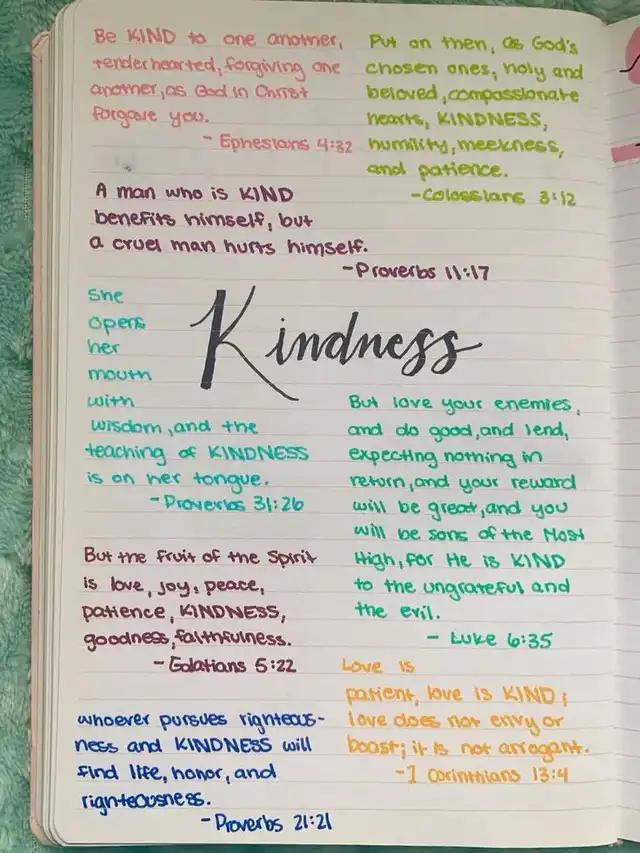 Be KIND to one another,
tenderhearted, forgiving one
another, as God in Christ
forgave you.
- Ephesians 4:32
Put on then, as God's
chosen ones, holy and
beloved, compassionate
hearts, KINDNESS,
humility, meekness,
and patience.
-Colossians 3:12
A man who is KIND
benefits himself, but
a cruel man hurts himself.
-Proverbs 11:17
She
opens
her
mouth
with
wisdom, and the
teaching of KINDNESS
is on her tongue.
-Proverbs 31:26
Kindness
But love your enemies,
and do good, and lend,
expecting nothing in
return, and your reward
will be great, and you
will be sons of the Most
High, for He is KIND
to the ungrateful and
the evil.
- Luke 6:35
But the fruit of the Spirit
is love, joy, peace,
patience, KINDNESS,
goodness, faithfulness.
- Galatians 5:22
Love is
patient, love is KIND;
love does not envy or
boast; it is not arrogant.
-1 Corinthians 13:4
whoever pursues righteous-
ness and KINDNESS will
find life, honor, and
righteousness.
-Proverbs 21:21